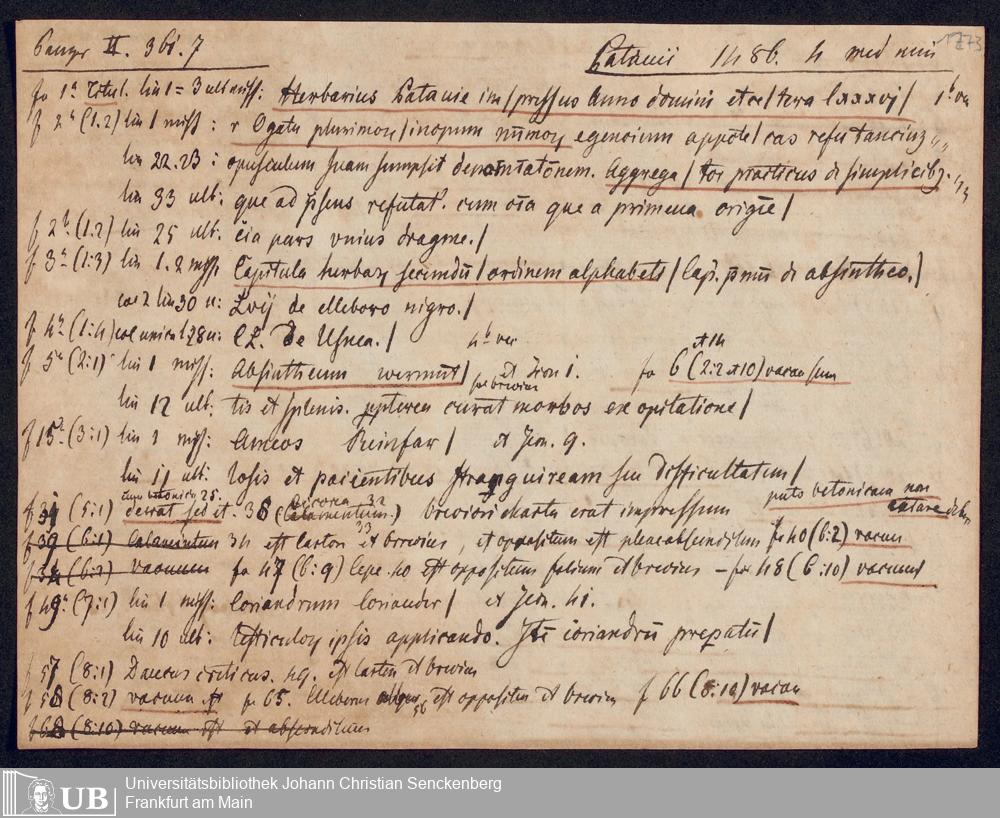 Panzer II. 361. 7
Patauii 1486. 4 med min
1273
fo 1a Titul. lin 1 = 3 ult miss: Herbarius Patauie im/pressus Anno domini et ce/tera lxxxvj/ 1b va
f 2a (1.2) lin 1 miss: r Ogatu plurimorum/inopum nummorum egencium appote/cas refutancium
lin 22.23: opusculum suam sumpsit denominationem. Aggrega/tor practicus de simplicibz.
lin 33 ult: que ad presens refutat. cum oia que a primeua origine/
f 2b (1.2) lin 25 ult. cia pars vnius dragme./
f 3a (1:3) lin 1.2 miss. Capitula herbarum secundu/ordinem alphabeti/ Cap. primu de absintheo./
col 2 lin 30 u: Lvij de elleboro nigro./
f 4a (1:4) col unica l 28 u: CL. De Usnea./ 4b va
f 5a (2:1) lin 1 miss: Absintheum wermut/ et Icon 1. fo 6 (2:2 et 10) vacua sunt
et 14
fol brevius
lin 12 ult: tis et splenis. propterea curat morbos ex opilatione/
f 15a (3:1) lin 1 miss: Ameos Reinfar/ et Icon. 9.
lin 11 ult. losis et pacientibus stranguiream seu difficultatem/
cum betonica 25.
f 31 (5:1) deerat sed et. 38 (Calamentum.) breviori charta erat impressum
puto betonicam non
f 39 (6:1) Calamintum 34 est carton et brevius, et oppositum est plene abscinditum fo 40 (6:2) vacuu
(6:2) vacuum fo 47 (6:9) Cepe. 40 est oppositum folium et brevius – fo 48 (6:10) vacuum
f 49a (7:1) lin 1 miss: Coriandrum Coriander/ et Icon. 41.
lin 10 ult: testiculorum ipsis applicando. Ite coriandru preparatu/
f 57 (8:1) Daucus creticus. 49. est carton et brevius
f 58 (8:2) vacuum fo 65. Elleborus albus 56 est oppositus et brevius f 66 (8:10) vacuu
(8:10) vacuum est et abscinditum
Universitätsbibliothek Johann Christian Senckenberg
Frankfurt am Main
UB